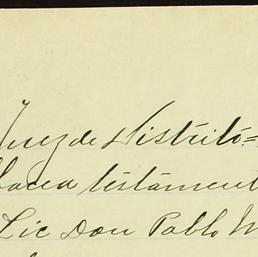 Juez de Distrito=
bacea testament
Lic Don Pablo M